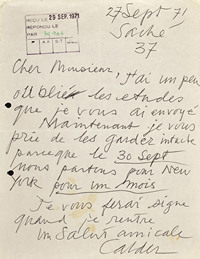 27 Sept 71
Saché
37
REÇU LE 29 SEP. 1971
REPONDU LE
PAR
Cher Monsieur,
J'ai un peu
oublié les etudes
que je vous ai envoyé
Maintenant je vous
prie de les garder intacte
parceque le 30 Sept
nous partons pour New
York pour un mois
Je vous ferai signe
quand je rentre
un Salut amicale
Calder